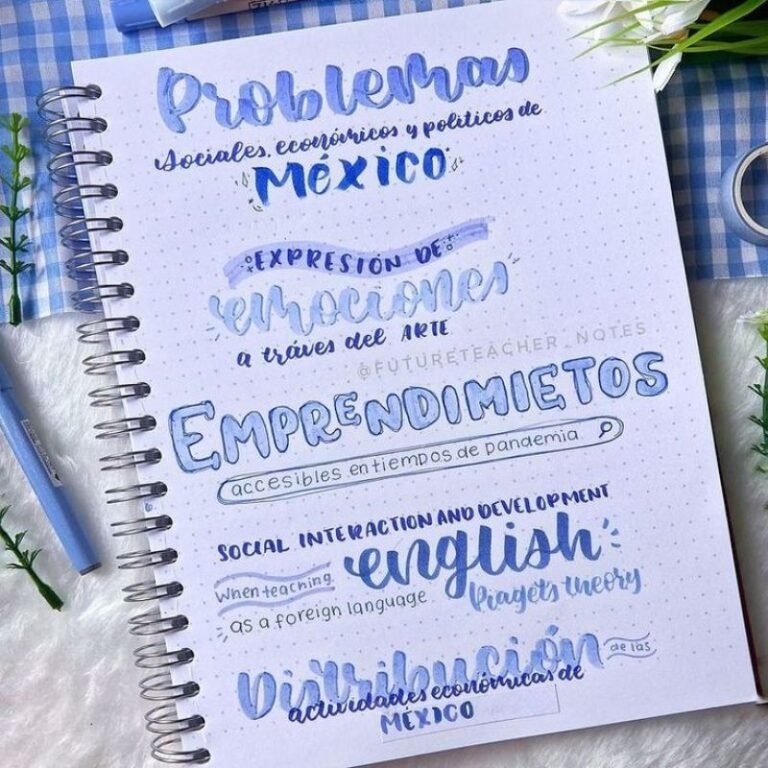 Problemas
Sociales, económicos y políticos de
México
EXPRESIÓN DE
emociones
a tráves del ARTE
@FUTURETEACHER_NOTES
EMPRENDIMIETOS
accesibles en tiempos de pandemia
SOCIAL INTERACTION AND DEVELOPMENT
When teaching english
as a foreign language Piaget's theory
Distribución de las
actividades económicas de
MÉXICO